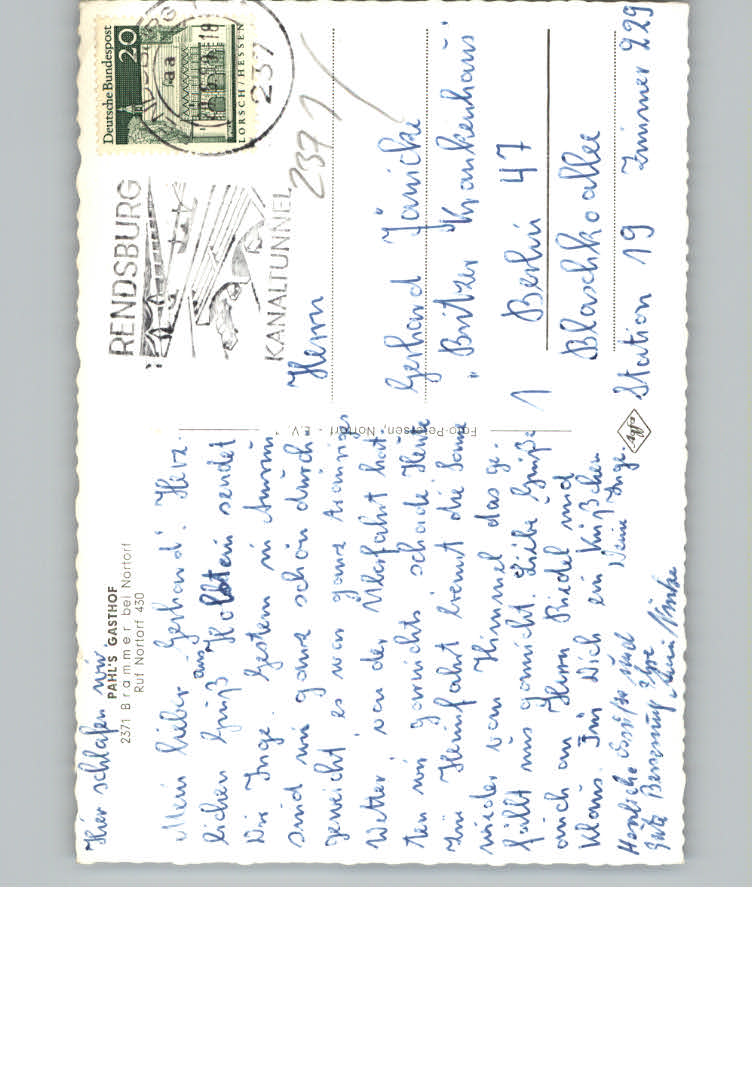 Hier schlafen wir.
PAHL'S GASTHOF
2371 Brammer bei Nortorf
Ruf Nortorf 430
Mein lieber Gerhard! Herz-
lichen Gruß aus Holstein sendet
Dir Inge. Gestern in Husum
sind wir ganz schön durch-
geweicht es war ganz trauriges
Wetter, von der Überfahrt hat-
ten wir garnichts schade. Heute
zur Heimfahrt brennt die Sonne
wieder vom Himmel das ge-
fällt uns garnicht. Liebe Grüße
auch an Herrn Riedel und
Klaus. Für Dich ein Küßchen
Deine Inge.
Herzliche Grüße und
gute Besserung Ihre
Foto-Petersen, Nortorf - E.V.
Agfa
RENDSBURG
KANALTUNNEL
Deutsche Bundespost
20
LORSCH/HESSEN
RENDSBURG
aa
237
2371
Herrn
Gerhard Jänicke
"Britzer Krankenhaus"
1 Berlin 47
Blaschkoallee
Station 19 Zimmer 229